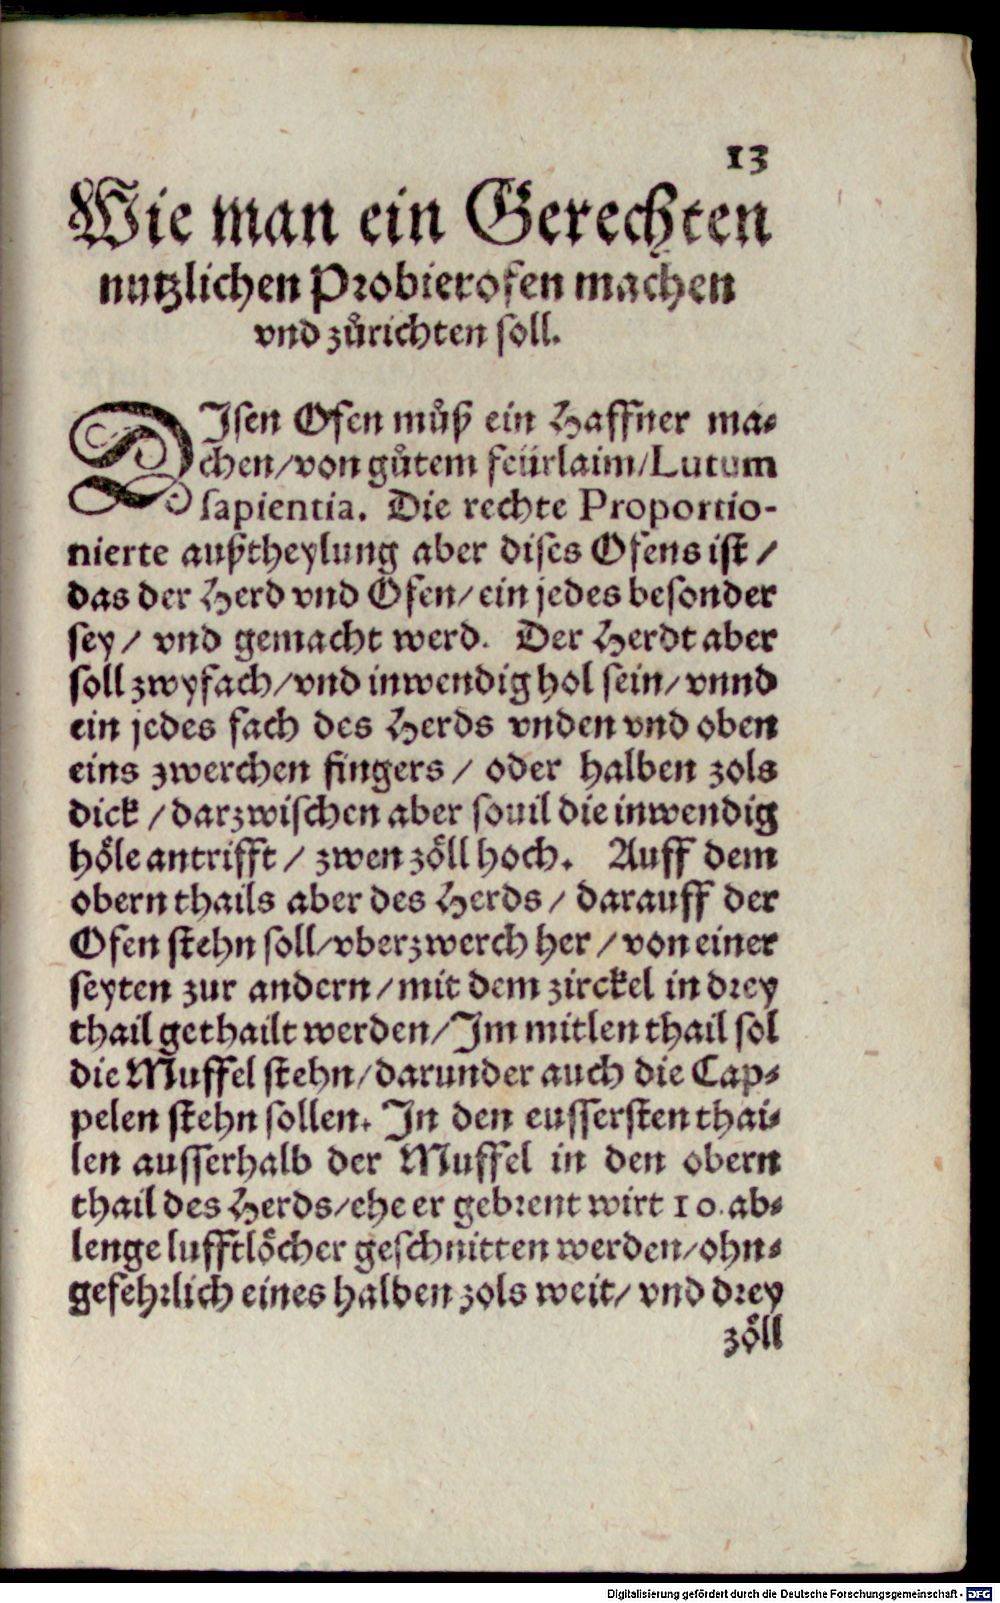 13
Wie man ein Gerechten
nutzlichen Probierofen machen
vnd zůrichten soll.
DIsen Ofen můß ein Haffner ma-
chen/von gůtem feürlaim/Lutum
sapientia. Die rechte Proportio-
nierte außtheylung aber dises Ofens ist /
das der Herd vnd Ofen/ein jedes besonder
sey/ vnd gemacht werd. Der Herdt aber
soll zwyfach/vnd inwendig hol sein/vnnd
ein jedes fach des Herds vnden vnd oben
eins zwerchen fingers / oder halben zols
dick /darzwischen aber souil die inwendig
höle antrifft / zwen zöll hoch. Auff dem
obern thails aber des Herds/ darauff der
Ofen stehn soll/vberzwerch her /von einer
seyten zur andern/mit dem zirckel in drey
thail gethailt werden/Im mitlen thail sol
die Muffel stehn/darunder auch die Cap-
pelen stehn sollen. In den eussersten thai-
len ausserhalb der Muffel in den obern
thail des Herds/ehe er gebrent wirt 10. ab-
lenge lufftlöcher geschnitten werden/ohn-
gefehrlich eines halben zols weit/ vnd drey
zöll
Digitalisierung gefördert durch die Deutsche Forschungsgemeinschaft - DFG